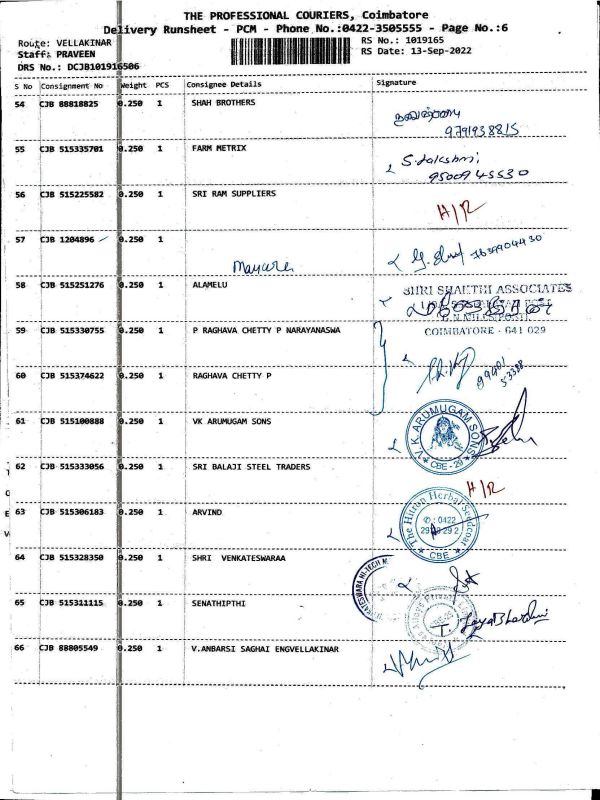 THE PROFESSIONAL COURIERS, Coimbatore
Delivery Runsheet - PCM - Phone No.:0422-3505555 - Page No.:6
Route: VELLAKINAR
RS No.: 1019165
Staff: PRAVEEN
RS Date: 13-Sep-2022
DRS No.: DCJB101916506
S No Consignment No Weight PCS Consignee Details Signature
54 CJB 88818825 0.250 1 SHAH BROTHERS
9791938815
55 CJB 515335701 0.250 1 FARM METRIX S. Lakshmi
9500945530
56 CJB 515225582 0.250 1 SRI RAM SUPPLIERS H/R
57 CJB 1204896 0.250 1
58 CJB 515251276 0.250 1 ALAMELU SHRI SHAKTHI ASSOCIATES
59 CJB 515330755 0.250 1 P RAGHAVA CHETTY P NARAYANASWA COIMBATORE - 641 029
60 CJB 515374622 0.250 1 RAGHAVA CHETTY P
99401
53388
61 CJB 515100888 0.250 1 VK ARUMUGAM SONS V.K. ARUMUGAM SONS CBE - 29
62 CJB 515333056 0.250 1 SRI BALAJI STEEL TRADERS H/R
63 CJB 515306183 0.250 1 ARVIND The Hitron Herbal Seedcoat
✆ : 0422
CBE
64 CJB 515328350 0.250 1 SHRI VENKATESWARAA
65 CJB 515311115 0.250 1 SENATHIPTHI T. Jaya Bharathi
66 CJB 88805549 0.250 1 V.ANBARSI SAGHAI ENGVELLAKINAR